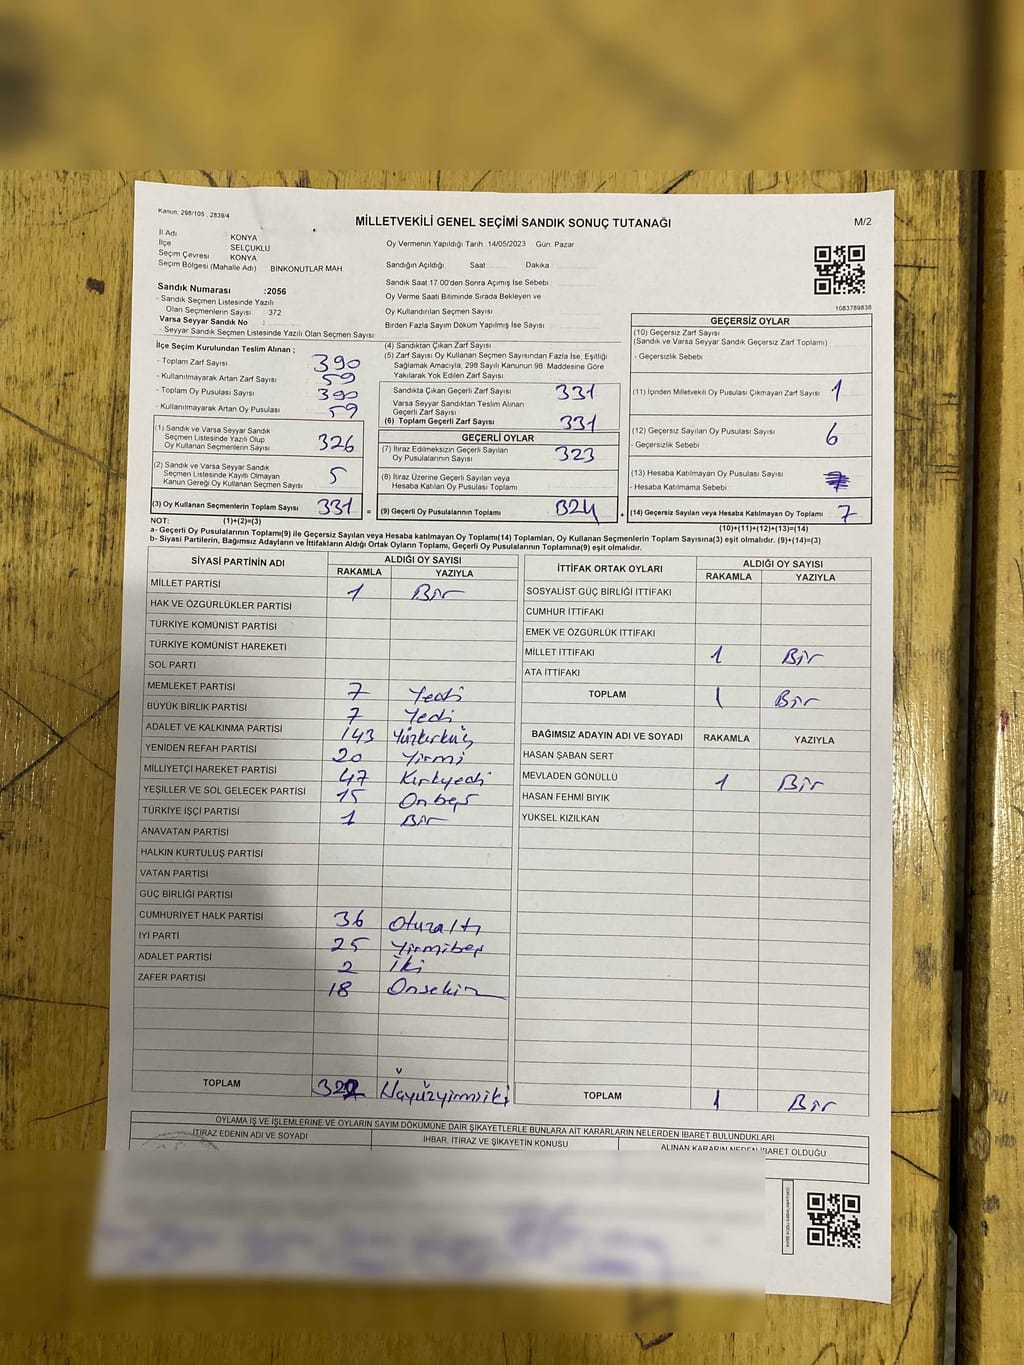 Kanun, 298/105 , 2839/4
MİLLETVEKİLİ GENEL SEÇİMİ SANDIK SONUÇ TUTANAĞI
M/2
İl Adı : KONYA
İlçe : SELÇUKLU
Seçim Çevresi : KONYA
Seçim Bölgesi (Mahalle Adı) : BİNKONUTLAR MAH
Sandık Numarası :2056
- Sandık Seçmen Listesinde Yazılı
Olan Seçmenlerin Sayısı : 372
Varsa Seyyar Sandık No :
- Seyyar Sandık Listesinde Yazılı Olan Seçmen Sayısı
Oy Vermenin Yapıldığı Tarih :14/05/2023 Gün: Pazar
Sandığın Açıldığı Saat: Dakika:
Sandık Saat 17.00'den Sonra Açımış İse Sebebi :
Oy Verme Saati Bitiminde Sırada Bekleyen ve
Oy Kullandırılan Seçmen Sayısı :
Birden Fazla Sayım Döküm Yapılmış İse Sayısı
1083789838
İlçe Seçim Kurulundan Teslim Alınan ;
- Toplam Zarf Sayısı : 390
- Kullanılmayarak Artan Zarf Sayısı : 59
- Toplam Oy Pusulası Sayısı : 390
- Kullanılmayarak Artan Oy Pusulası : 59
(1) Sandık ve Varsa Seyyar Sandık
Seçmen Listesinde Yazılı Olup
Oy Kullanan Seçmenlerin Sayısı : 326
(2) Sandık ve Varsa Seyyar Sandık
Seçmen Listesinde Kayıtlı Olmayan
Kanun Gereği Oy Kullanan Seçmen Sayısı : 5
(3) Oy Kullanan Seçmenlerin Toplam Sayısı : 331 =
(4) Sandıktan Çıkan Zarf Sayısı
(5) Zarf Sayısı Oy Kullanan Seçmen Sayısından Fazla İse, Eşitliği
Sağlamak Amacıyla, 298 Sayılı Kanunun 98. Maddesine Göre
Yakılarak Yok Edilen Zarf Sayısı
Sandıkta Çıkan Geçerli Zarf Sayısı : 331
Varsa Seyyar Sandıktan Teslim Alınan
Geçerli Zarf Sayısı :
(6) Toplam Geçerli Zarf Sayısı : 331
GEÇERLİ OYLAR
(7) İtiraz Edilmeksizin Geçerli Sayılan
Oy Pusulalarının Sayısı : 323
(8) İtiraz Üzerine Geçerli Sayılan veya
Hesaba Katılan Oy Pusulası Toplamı :
(9) Geçerli Oy Pusulalarının Toplamı : 324 +
GEÇERSİZ OYLAR
(10) Geçersiz Zarf Sayısı
(Sandık ve Varsa Seyyar Sandık Geçersiz Zarf Toplamı)
- Geçersizlik Sebebi
(11) İçinden Milletvekili Oy Pusulası Çıkmayan Zarf Sayısı : 1
(12) Geçersiz Sayılan Oy Pusulası Sayısı : 6
- Geçersizlik Sebebi
(13) Hesaba Katılmayan Oy Pusulası Sayısı :
- Hesaba Katılmama Sebebi :
(14) Geçersiz Sayılan veya Hesaba Katılmayan Oy Toplamı : 7
NOT: (1)+(2)=(3)
(10)+(11)+(12)+(13)=(14)
a- Geçerli Oy Pusulalarının Toplamı(9) ile Geçersiz Sayılan veya Hesaba katılmayan Oy Toplamı(14) Toplamları, Oy Kullanan Seçmenlerin Toplam Sayısına(3) eşit olmalıdır. (9)+(14)=(3)
b- Siyasi Partilerin, Bağımsız Adayların ve İttifakların Aldığı Ortak Oyların Toplamı, Geçerli Oy Pusulalarının Toplamına(9) eşit olmalıdır.
SİYASİ PARTİNİN ADI ALDIĞI OY SAYISI
RAKAMLA YAZIYLA
MİLLET PARTİSİ 1 Bir
HAK VE ÖZGÜRLÜKLER PARTİSİ
TÜRKİYE KOMÜNİST PARTİSİ
TÜRKİYE KOMÜNİST HAREKETİ
SOL PARTİ
MEMLEKET PARTİSİ 7 Yedi
BÜYÜK BİRLİK PARTİSİ 7 Yedi
ADALET VE KALKINMA PARTİSİ 143 Yüzkırküç
YENİDEN REFAH PARTİSİ 20 Yirmi
MİLLİYETÇİ HAREKET PARTİSİ 47 Kırkyedi
YEŞİLLER VE SOL GELECEK PARTİSİ 15 Onbeş
TÜRKİYE İŞÇİ PARTİSİ 1 Bir
ANAVATAN PARTİSİ
HALKIN KURTULUŞ PARTİSİ
VATAN PARTİSİ
GÜÇ BİRLİĞİ PARTİSİ
CUMHURİYET HALK PARTİSİ 36 Otuzaltı
İYİ PARTİ 25 Yirmibeş
ADALET PARTİSİ 2 İki
ZAFER PARTİSİ 18 Onsekiz
TOPLAM 322 Üçyüzyirmiiki
İTTİFAK ORTAK OYLARI ALDIĞI OY SAYISI
RAKAMLA YAZIYLA
SOSYALİST GÜÇ BİRLİĞİ İTTİFAKI
CUMHUR İTTİFAKI
EMEK VE ÖZGÜRLÜK İTTİFAKI
MİLLET İTTİFAKI 1 Bir
ATA İTTİFAKI
TOPLAM 1 Bir
BAĞIMSIZ ADAYIN ADI VE SOYADI RAKAMLA YAZIYLA
HASAN ŞABAN SERT
MEVLADEN GÖNÜLLÜ 1 Bir
HASAN FEHMİ BIYIK
YÜKSEL KIZILKAN
TOPLAM 1 Bir
OYLAMA İŞ VE İŞLEMLERİNE VE OYLARIN SAYIM DÖKÜMÜNE DAİR ŞİKAYETLERLE BUNLARA AİT KARARLARIN NELERDEN İBARET BULUNDUKLARI
İTİRAZ EDENİN ADI VE SOYADI İHBAR, İTİRAZ VE ŞİKAYETİN KONUSU ALINAN KARARIN NEDEN İBARET OLDUĞU